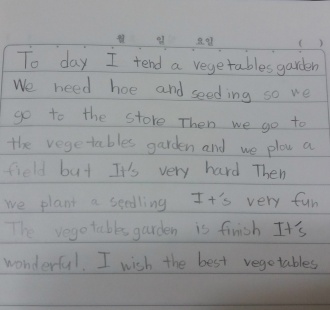 월 일 요일 ( )
To day I tend a vegetables garden
We need hoe and seeding so we
go to the store Then we go to
the vegetables garden and we plou a
field but It's very hard Then
we plant a seedling It's very fun
The vegetables garden is finish It's
wonderful. I wish the best vegetables